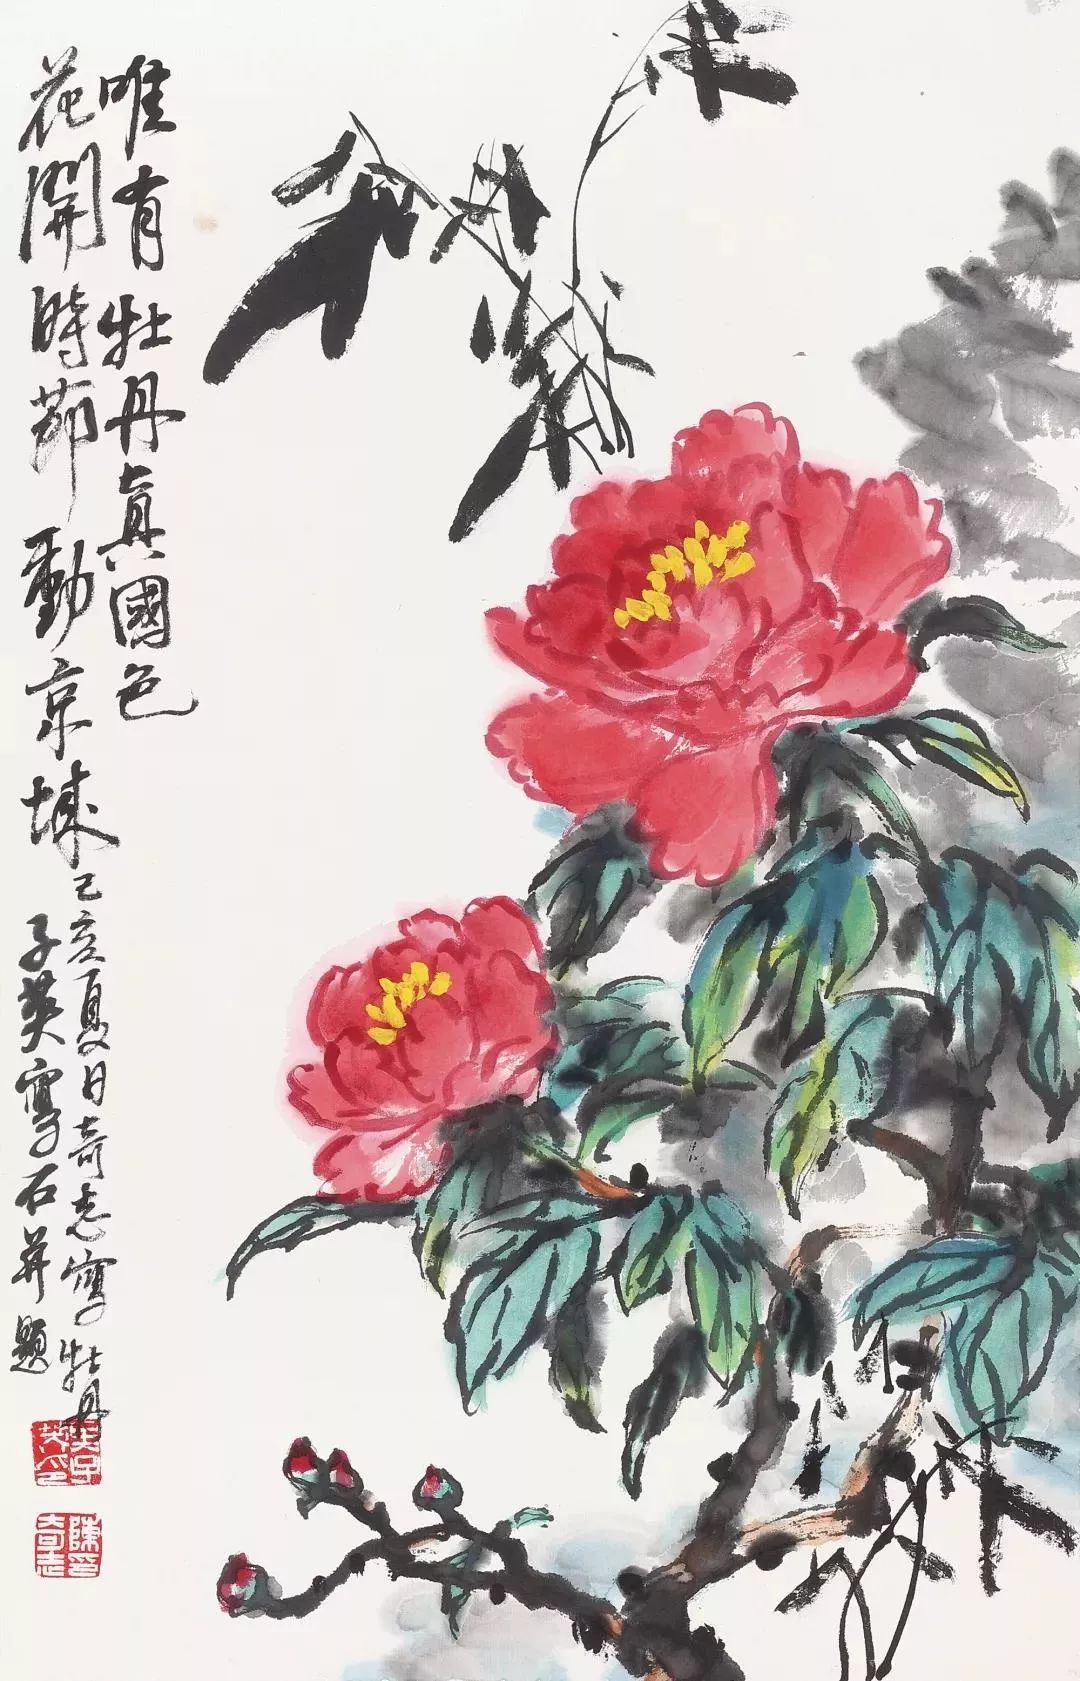 唯有牡丹真國色
花開時節動京城
己亥夏日奇志寫牡丹
子英寫石并題
吳子英印
陳奇志印